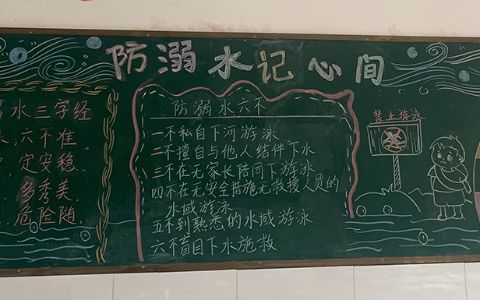 防溺水记心间
水三字经
六不准
定安稳
多秀美
危险随
防溺水六不
一不私自下河游泳
二不擅自与他人结伴下水
三不在无家长陪同下游泳
四不在无安全措施无救援人员的
水域游泳
五不到熟悉的水域游泳
六不盲目下水施救
禁止游泳